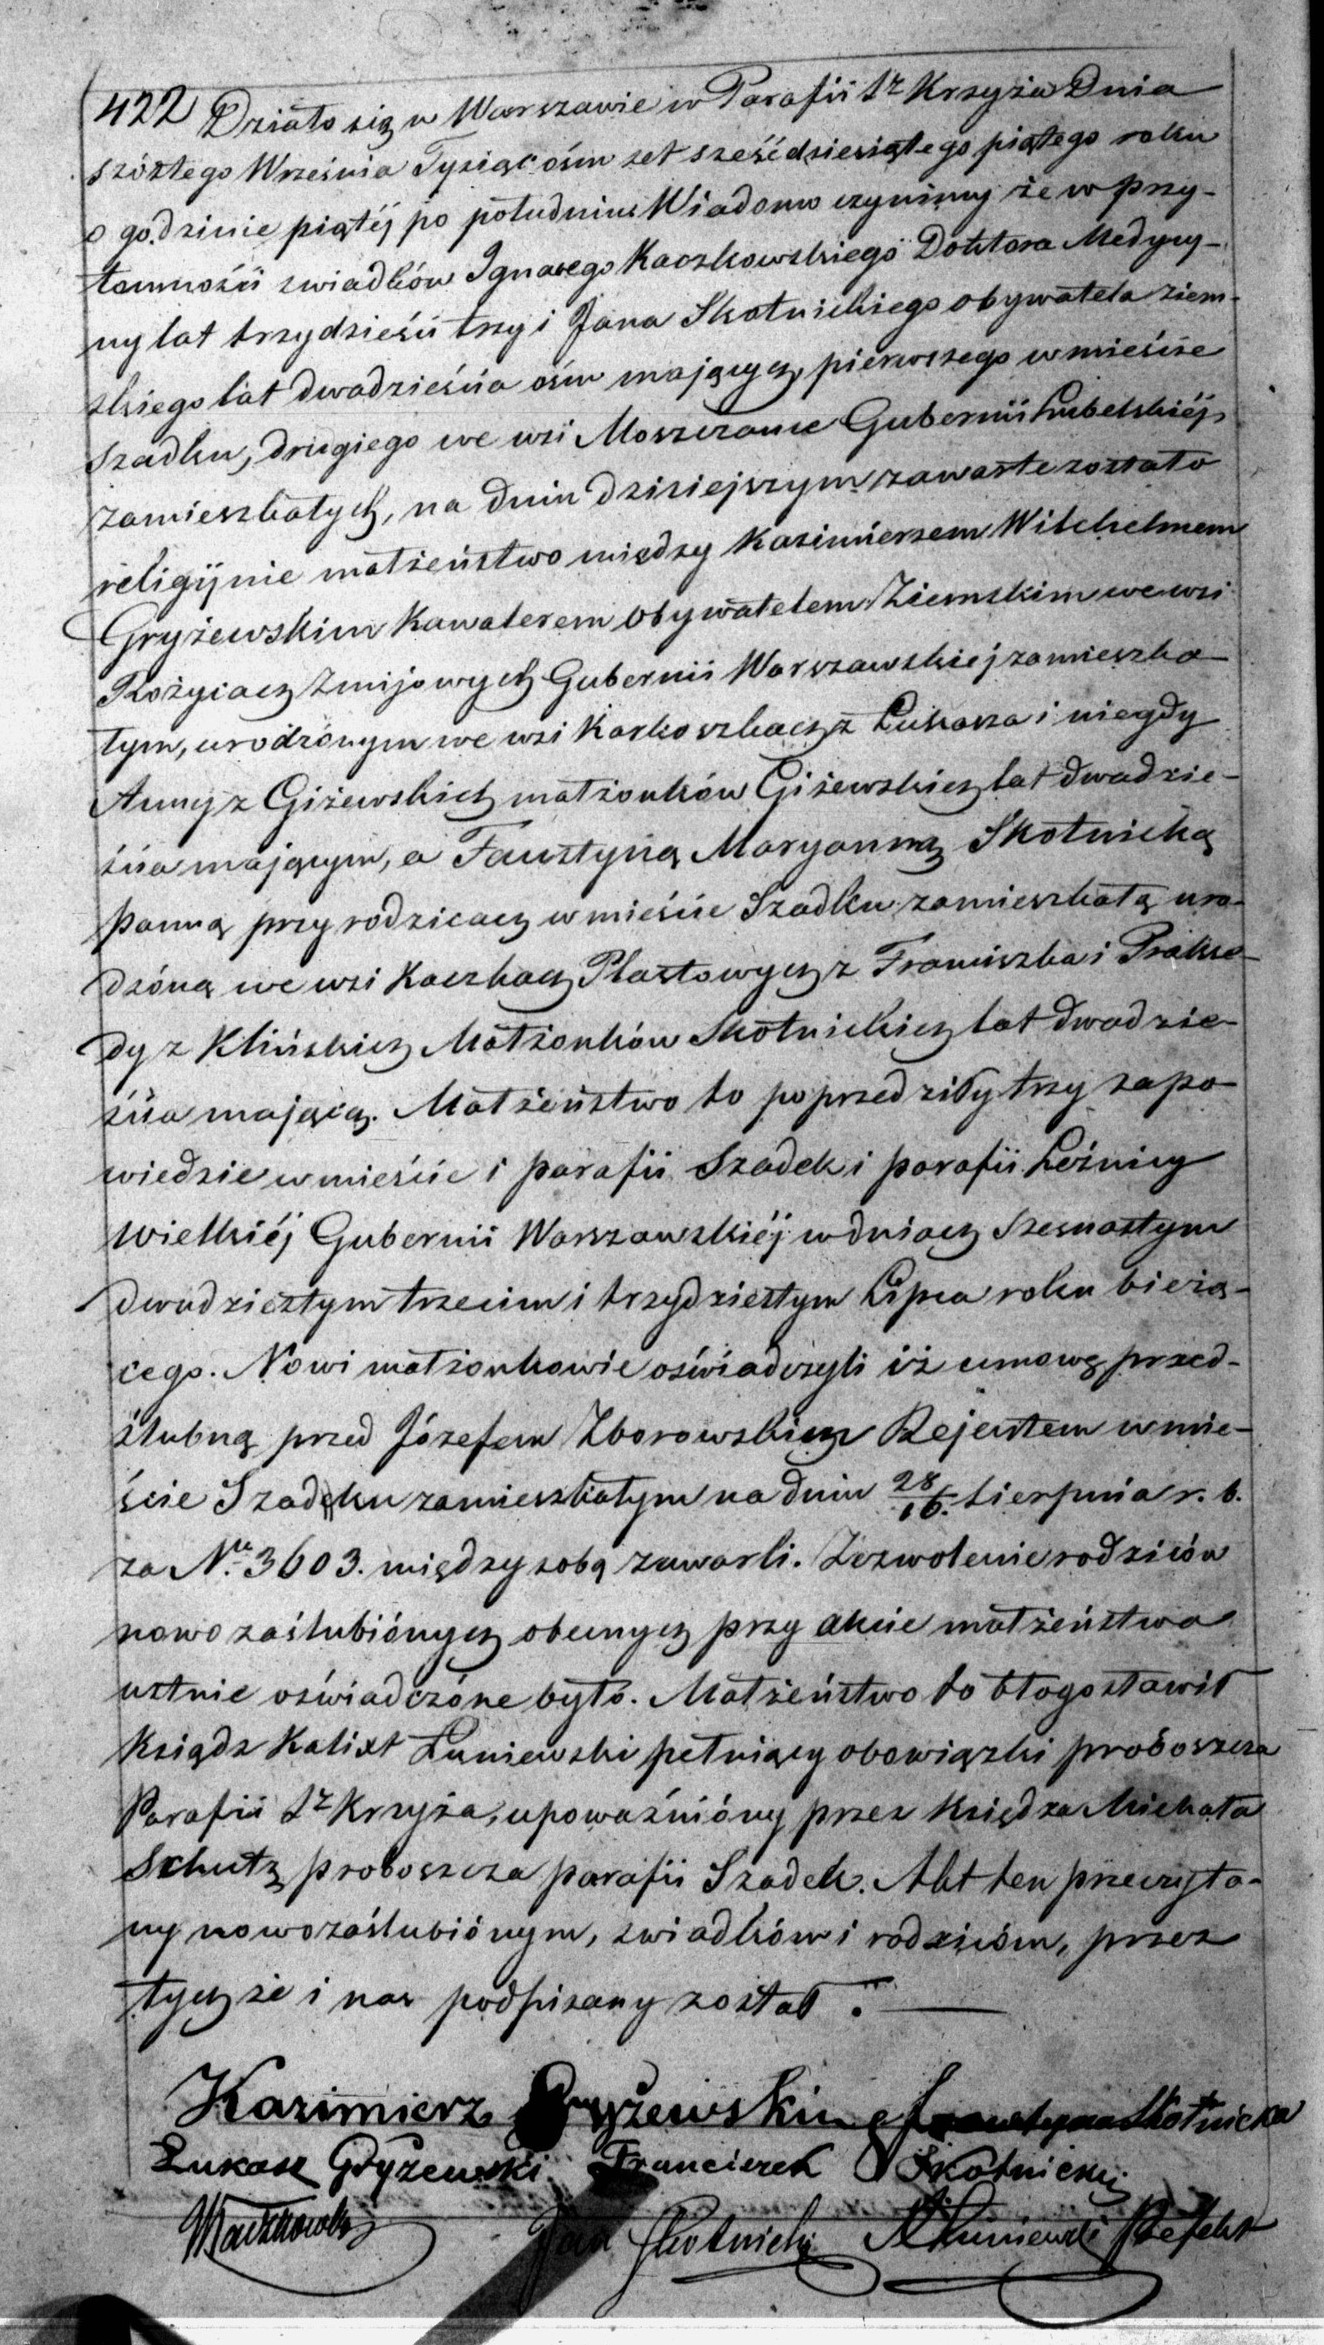 422 Działo się w Warszawie w Parafii Sgo Krzyża Dnia
szóstego Września Tysiąc ośm set sześćdziesiątego piątego roku
o godzinie piątéj po południu Wiadomo czynimy że w przy-
tomności świadków Ignacego Kaczkowskiego Doktora Medycy-
ny lat trzydzieści trzy i Jana Skotnickiego obywatela ziem-
skiego lat dwadzieścia ośm mających, pierwszego w mieście
Szadku, drugiego we wsi Moszczance Gubernii Lubelskiéj,
zamieszkałych, na dniu dzisiejszym zawarte zostało
religijnie małżeństwo między Kazimierzem Wilchelmem
Gryżewskim Kawalerem Obywatelem Ziemskim we wsi
Rożyciach Żmijowych Gubernii Warszawskiej zamieszka-
łym, urodzonym we wsi Karkoszkach z Łukasza i niegdy
Anny z Giżewskich małżonków Giżewskich lat dwadzie-
ścia mającym, a Faustyną Maryanną Skotnicką
Panną przy rodzicach w mieście Szadku zamieszkałą uro-
dzóną we wsi Kaczkach Plastowych z Franciszka i Prakse-
dy z Klińskich Małżonków Skotnickich lat dwadzie-
ścia mającą. Małżeństwo to poprzedziły trzy zapo-
wiedzie w mieście i parafii Szadek i parafii Leźnicy
Wielkiéj Gubernii Warszawskiéj w dniach Szesnastym
dwudziestym trzecim i trzydziestym Lipca roku bieżą-
cego. Nowi małżonkowie oświadczyli iż umowę przed-
ślubną przed Józefem Zborowskim Rejentem w mie-
ście Szadku zamieszkałym na dniu 28/16. Sierpnia r. b.
za No. 3603. między sobą zawarli. Zezwolenie rodziców
nowo zaślubiónych obecnych przy akcie małżeństwa
ustnie oświadczóne było. Małżeństwo to błogosławił
Ksiądz Kalixt Łuniewski pełniący obowiązki proboszcza
Parafii Sgo Krzyża, upoważnióny przez Księdza Michała
Schutz proboszcza parafii Szadek. Akt ten przeczyta-
ny nowozaślubiónym, świadkóm i rodzicóm, przez
tychże i nas podpisany został.
Kazimierz Gryżewski Faustyna Skotnicka
Łukasz Gryżewski Franciszek Skotnicki
IKaczkowski Jan Skotnicki KŁuniewski